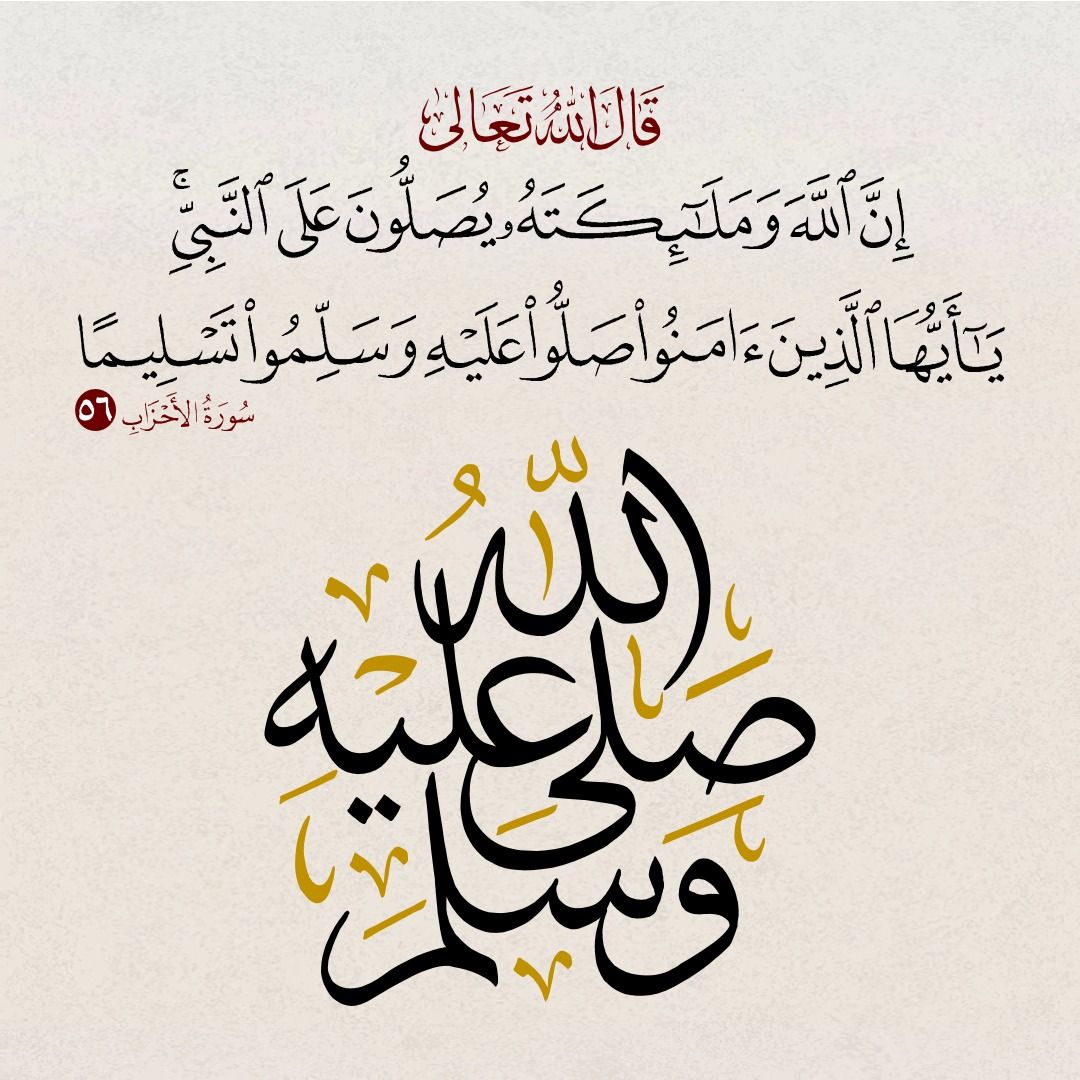 قَالَ اللَّهُ تَعَالَى
إِنَّ ٱللَّهَ وَمَلَـٰٓئِكَتَهُۥ يُصَلُّونَ عَلَى ٱلنَّبِىِّۚ
يَـٰٓأَيُّهَا ٱلَّذِينَ ءَامَنُوا۟ صَلُّوا۟ عَلَيْهِ وَسَلِّمُوا۟ تَسْلِيمًا
سُورَةُ الأَحْزَابِ ٥٦
صَلَّى اللَّهُ عَلَيْهِ وَسَلَّمَ